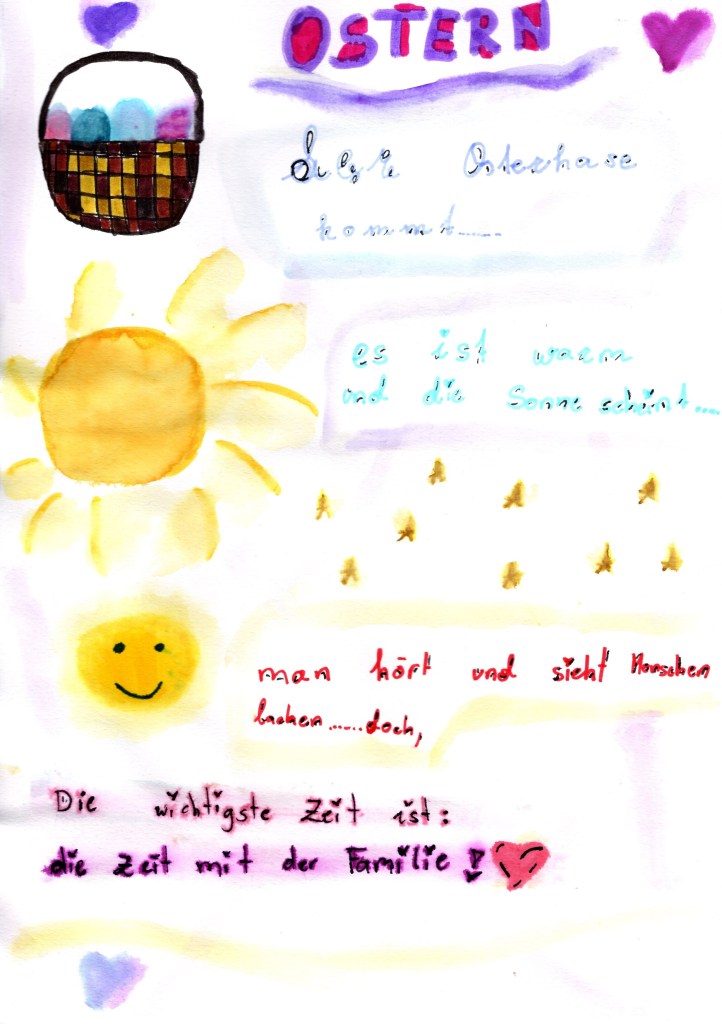 OSTERN
Osterhase
kommt......
es ist warm
und die Sonne scheint....
man hört und sieht Menschen
lachen......doch,
Die wichtigste Zeit ist:
die Zeit mit der Familie!